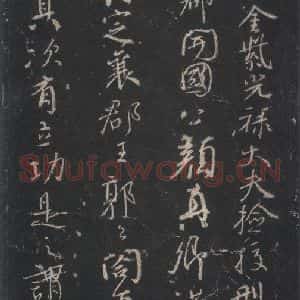 金紫光祿大夫檢校刑
郡開國公顏真卿
定襄郡王郭公閤
其次有立功是之謂
Shufawang.CN